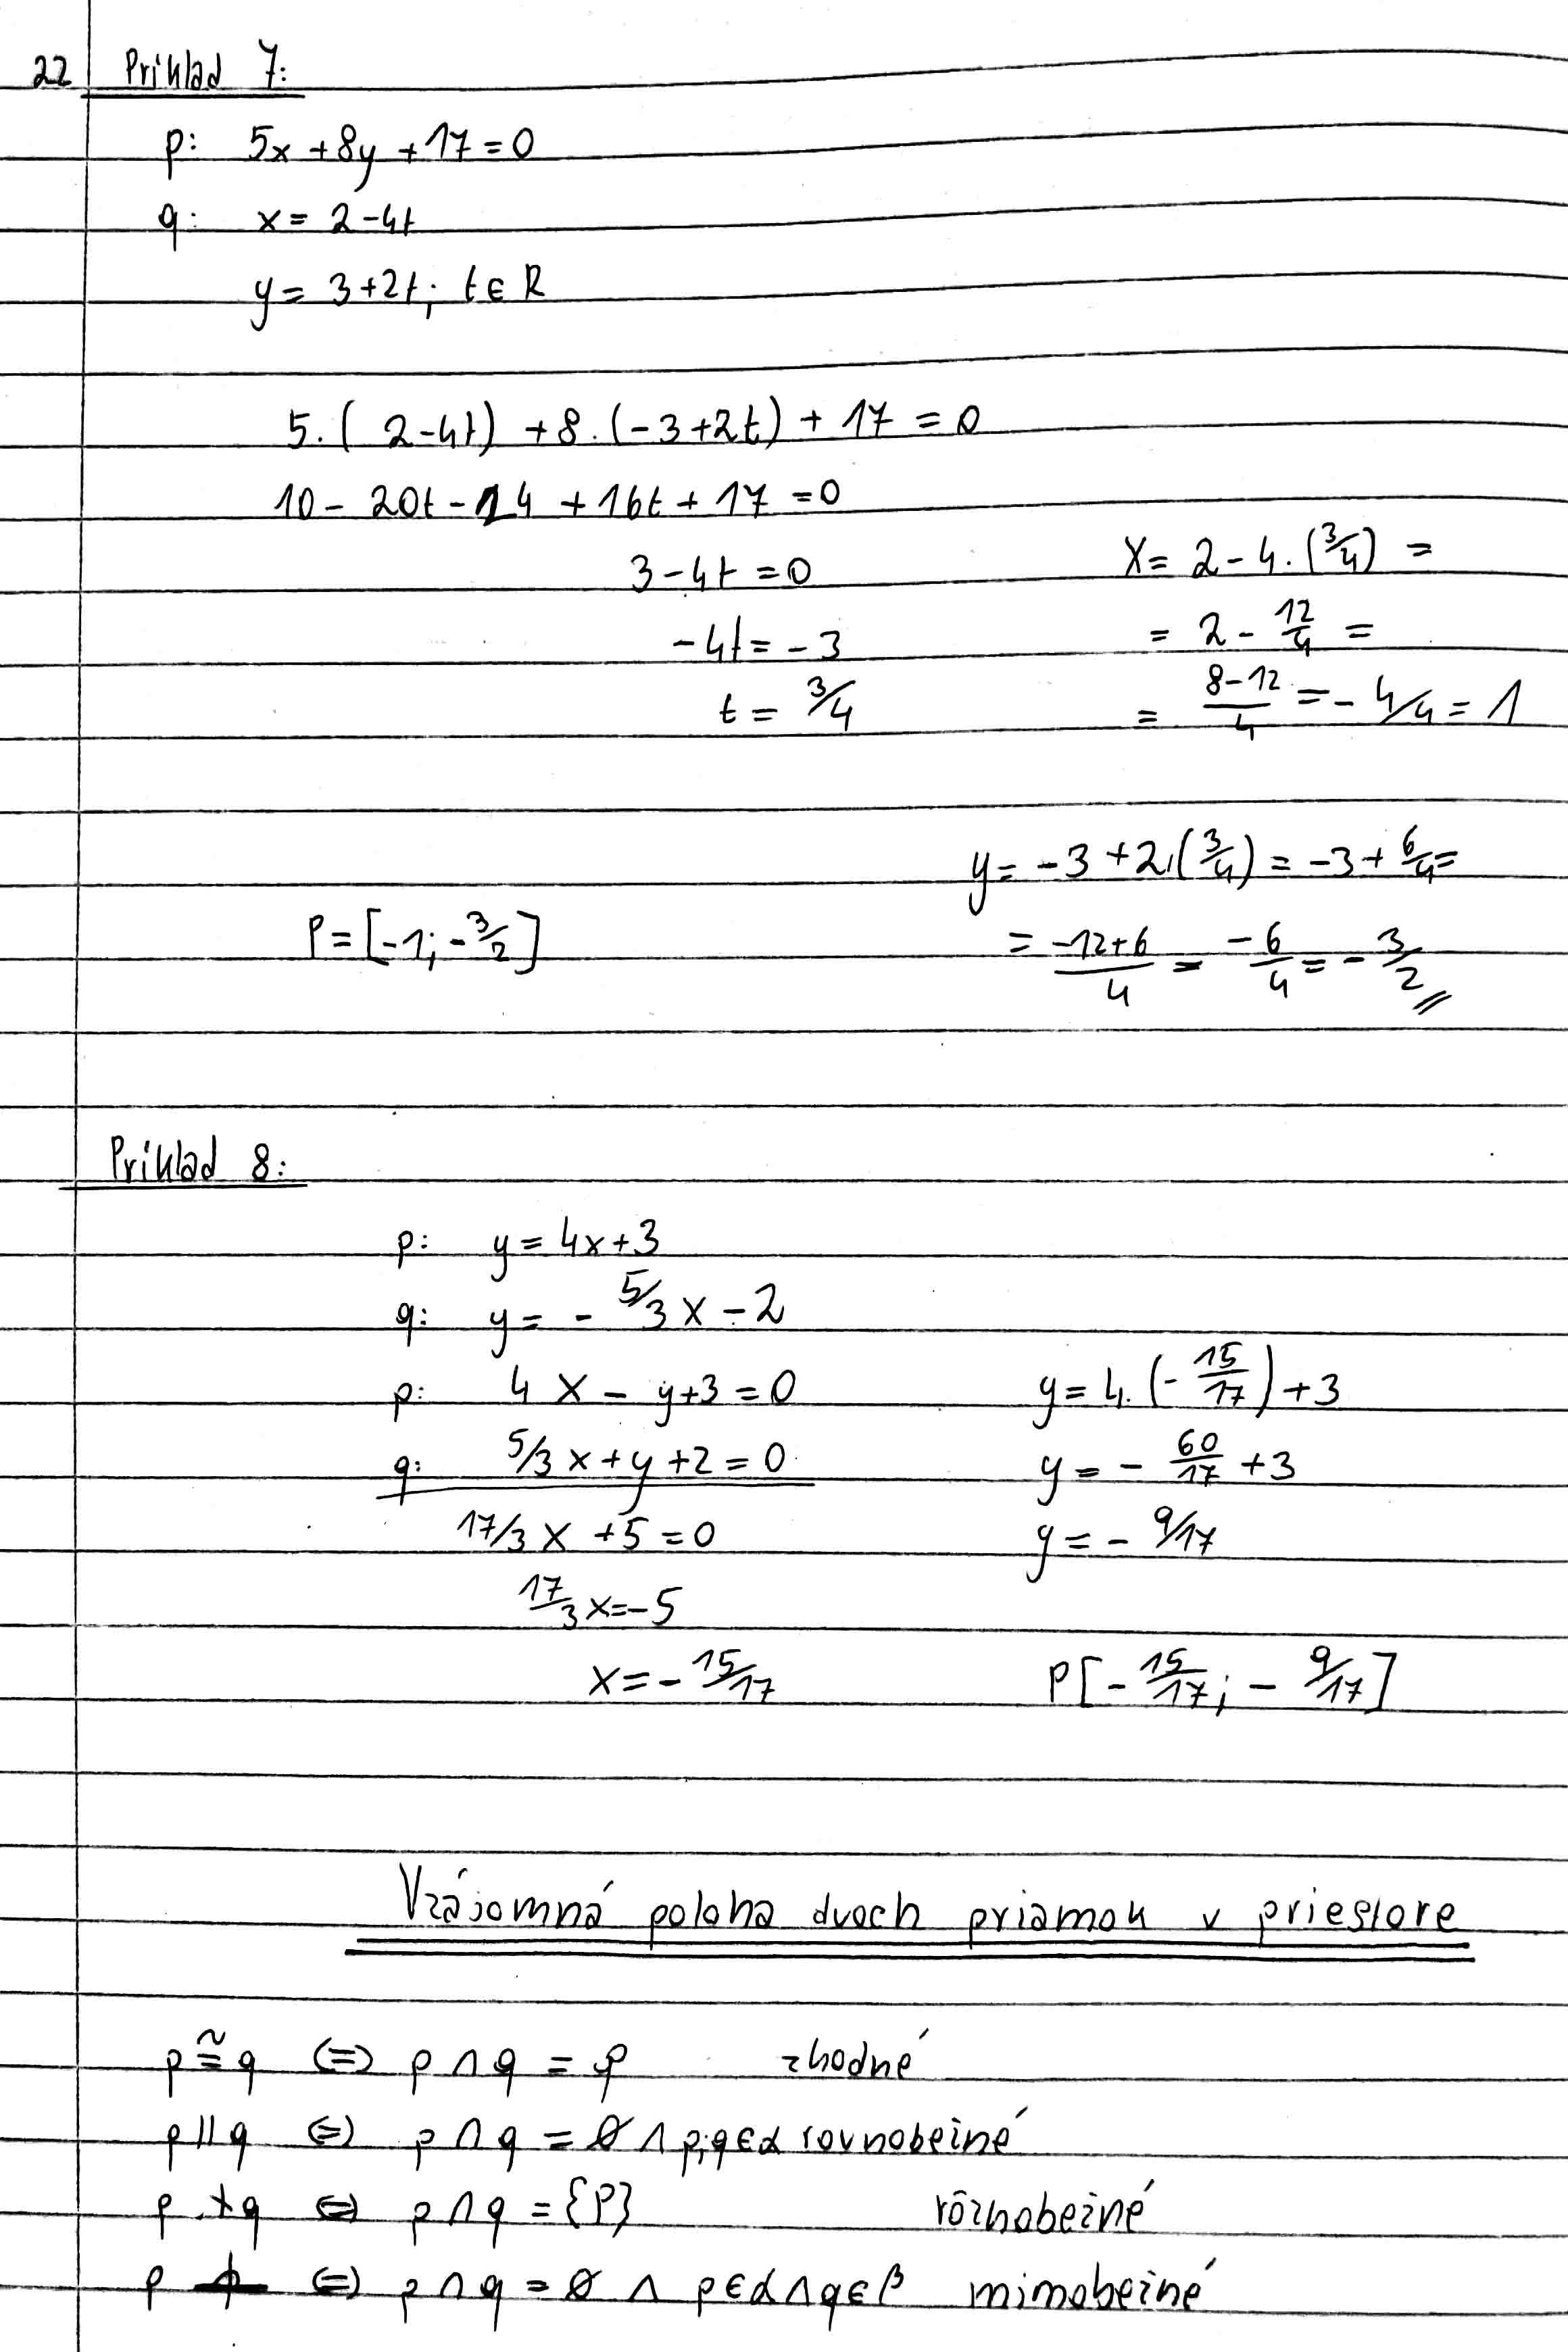 22 Príklad 7:
p: 5x + 8y + 17 = 0
q: x = 2 - 4t
y = 3 + 2t; t ∈ R
5.(2-4t) + 8.(-3+2t) + 17 = 0
10 - 20t - 24 + 16t + 17 = 0
3 - 4t = 0
-4t = -3
t = 3/4
X = 2 - 4.(3/4) =
= 2 - 12/4 =
= (8-12)/4 = - 4/4 = 1
y = -3 + 2.(3/4) = -3 + 6/4 =
= (-12+6)/4 = -6/4 = - 3/2
P = [-1; -3/2]
Príklad 8:
p: y = 4x + 3
q: y = - 5/3 x - 2
p: 4x - y + 3 = 0
q: 5/3 x + y + 2 = 0
17/3 x + 5 = 0
17/3 x = -5
x = - 15/17
y = 4.(- 15/17) + 3
y = - 60/17 + 3
y = - 9/17
P[- 15/17; - 9/17]
Vzájomná poloha dvoch priamok v priestore
p ≅ q ⇔ p ∩ q = p zhodné
p ∥ q ⇔ p ∩ q = ∅ ∧ p;q ∈ α rovnobežné
p ∦ q ⇔ p ∩ q = {P} rôznobežné
p ⇔ p ∩ q = ∅ ∧ p ∈ α ∧ q ∈ β mimobežné